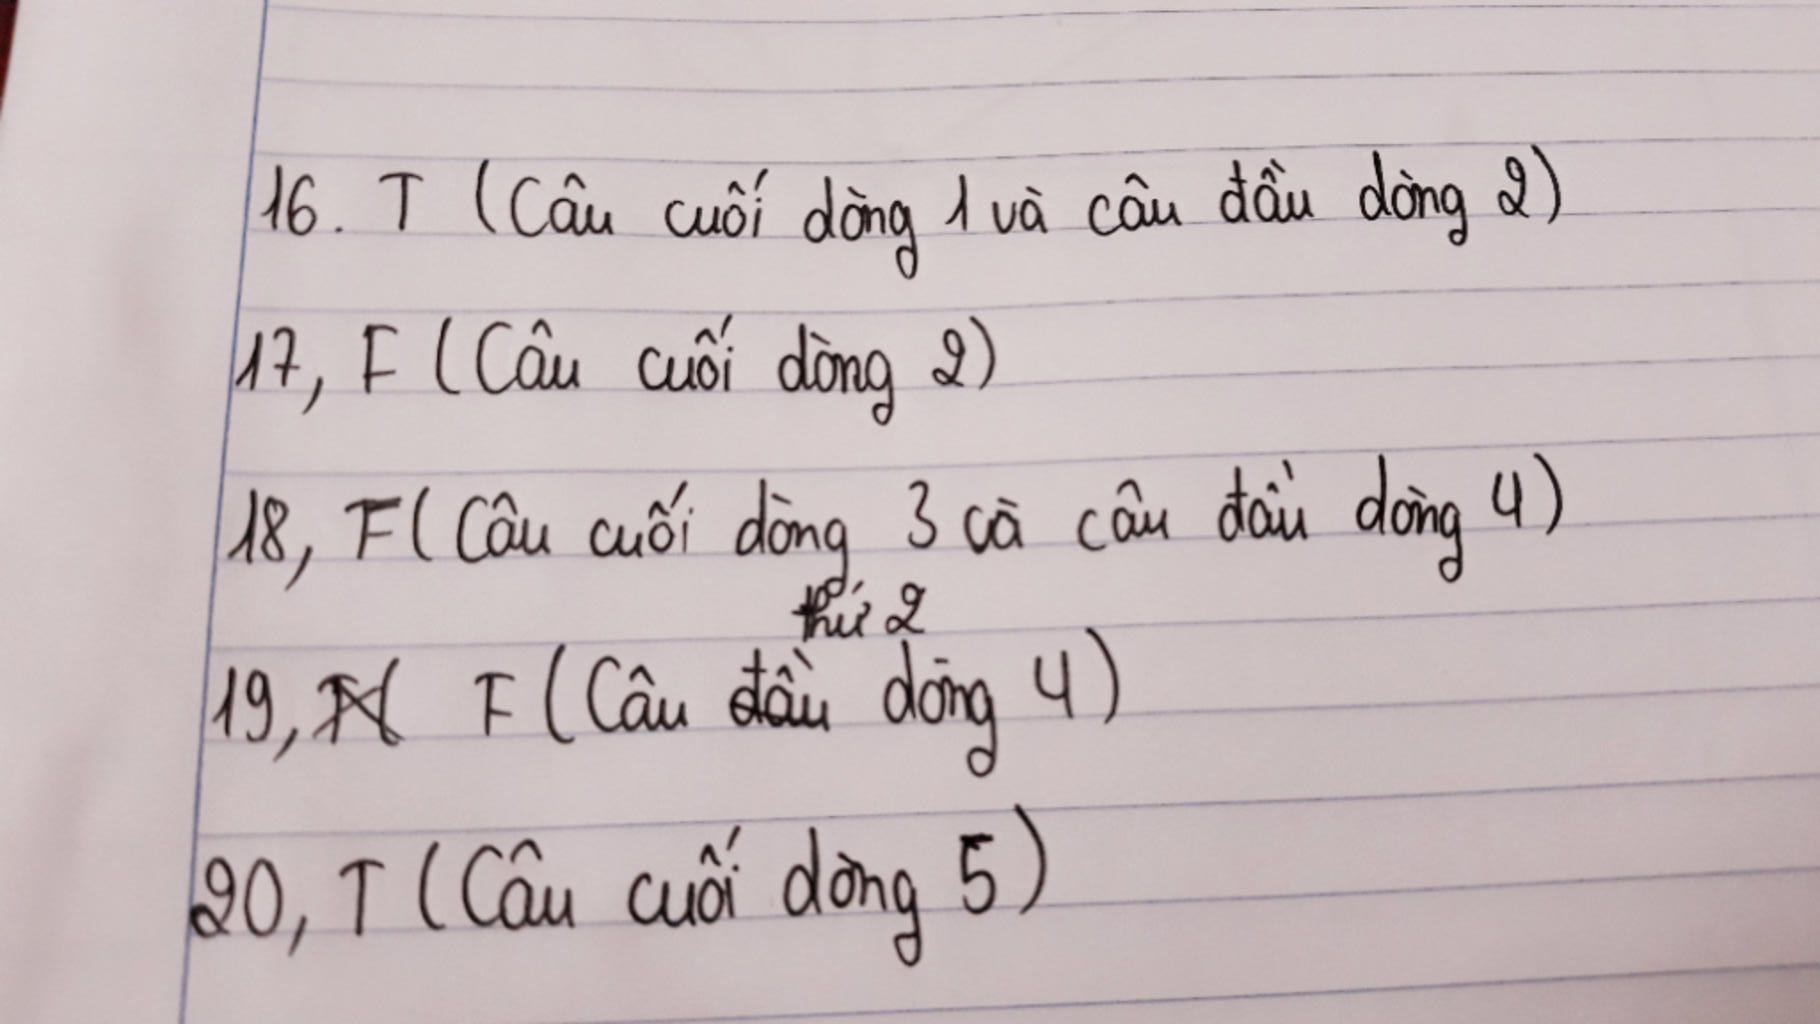 16. T (Câu cuối dòng 1 và câu đầu dòng 2)
17, F (Câu cuối dòng 2)
18, F (Câu cuối dòng 3 và câu đầu dòng 4)
thứ 2
19, F (Câu đầu dòng 4)
20, T (Câu cuối dòng 5)